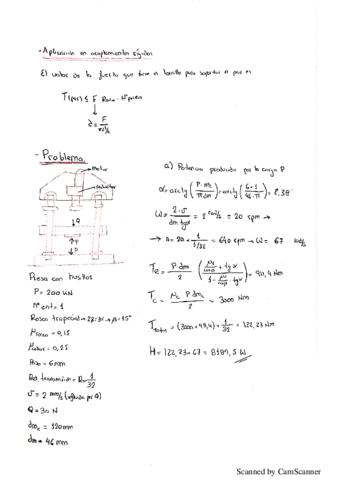 - Aplicación en acoplamientos rígidos
El valor de la fuerza que tiene el tornillo para soportar el par es
T(par) ≤ F · Rosc · Nº pernos
F
- Problema
motor
reductor
Q
P
Prensa con husillos
P = 200 kN
nº ent = 1
Rosca trapecial → 2β = 30 → β = 15°
μ rosca = 0,15
μ collar = 0,25
Paso = 6 mm
Rel. transmisión = R = 1/32
v = 2 mm/s
Q = 30 N
dmc = 120 mm
dm = 46 mm
a) Potencia producida por la carga P
α = arctg (P · nº / π dm) = arctg (6 · 1 / 46 · π) = 2,38°
→ n = 20 × 1/(1/32) = 640 rpm → W = 67 rad/s
= 911,4 Nm
Tc = μc P dmc / 2 = 3000 Nm
Ttotal = (3000 + 911,4) · 1/32 = 122,23 Nm
H = 122,23 · 67 = 8189,5 W
Scanned by CamScanner